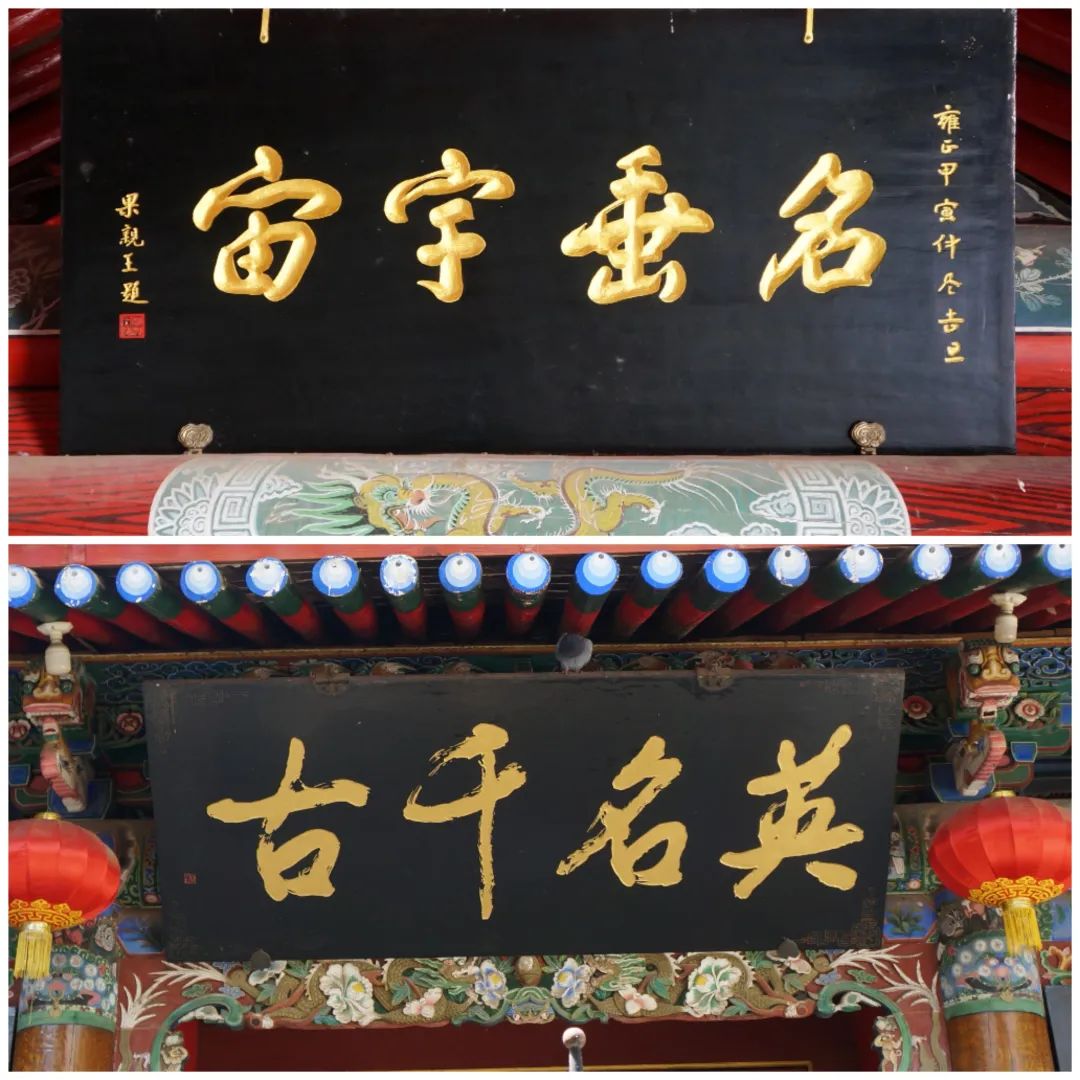 雍正甲寅仲冬吉旦
名垂宇宙
果親王題
英名千古